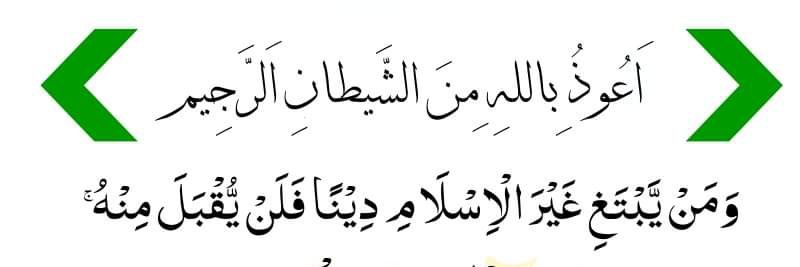 اَعُوذُ بِاللهِ مِنَ الشَّيطانِ اَلرَّجِيم
وَمَنْ يَّبْتَغِ غَيْرَ الْاِسْلَامِ دِيْنًا فَلَنْ يُّقْبَلَ مِنْهُ ۚ